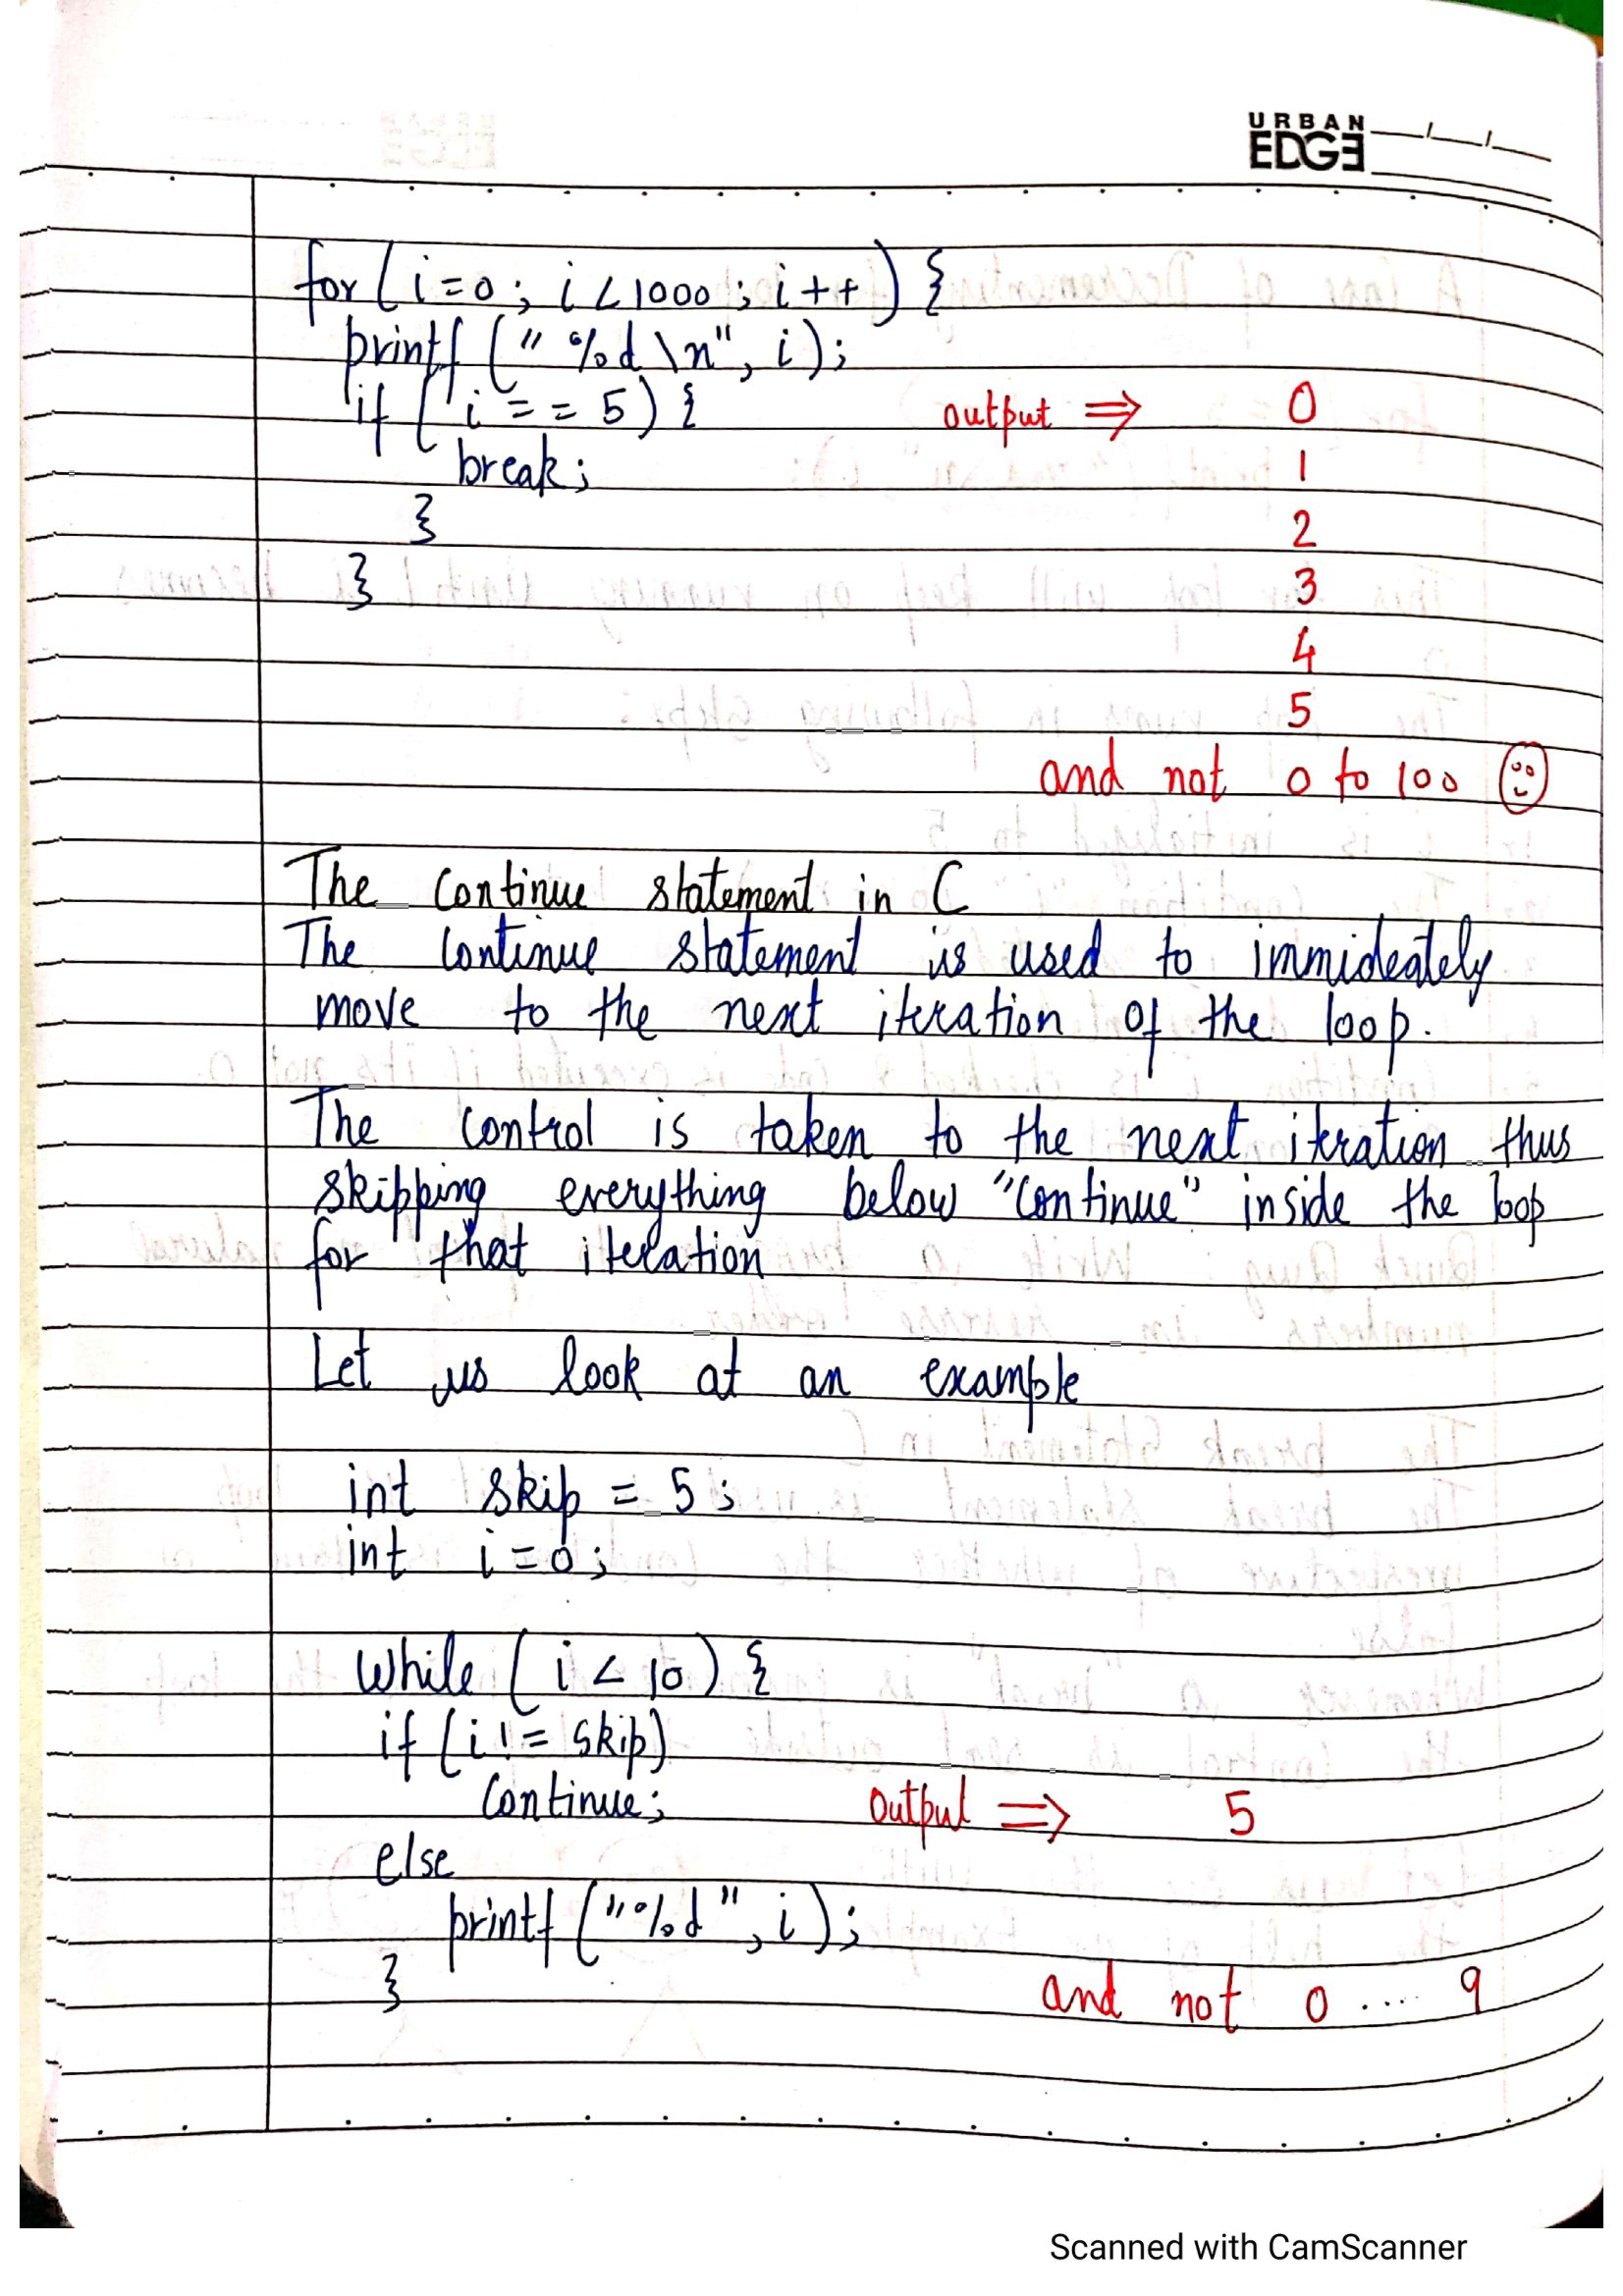 URBAN
EDGE
for (i=0; i<1000; i++) {
printf ("%d\n", i);
if (i == 5) {
output ⇒ 0
break;
1
}
2
}
3
4
5
and not 0 to 100
The continue statement in C
The continue statement is used to immideately
move to the next iteration of the loop.
The control is taken to the next iteration thus
skipping everything below "continue" inside the loop
for that iteration
Let us look at an example
int skip = 5;
int i=0;
while (i < 10) {
if (i != skip)
continue;
output ⇒ 5
else
printf ("%d", i);
}
and not 0 .... 9
Scanned with CamScanner